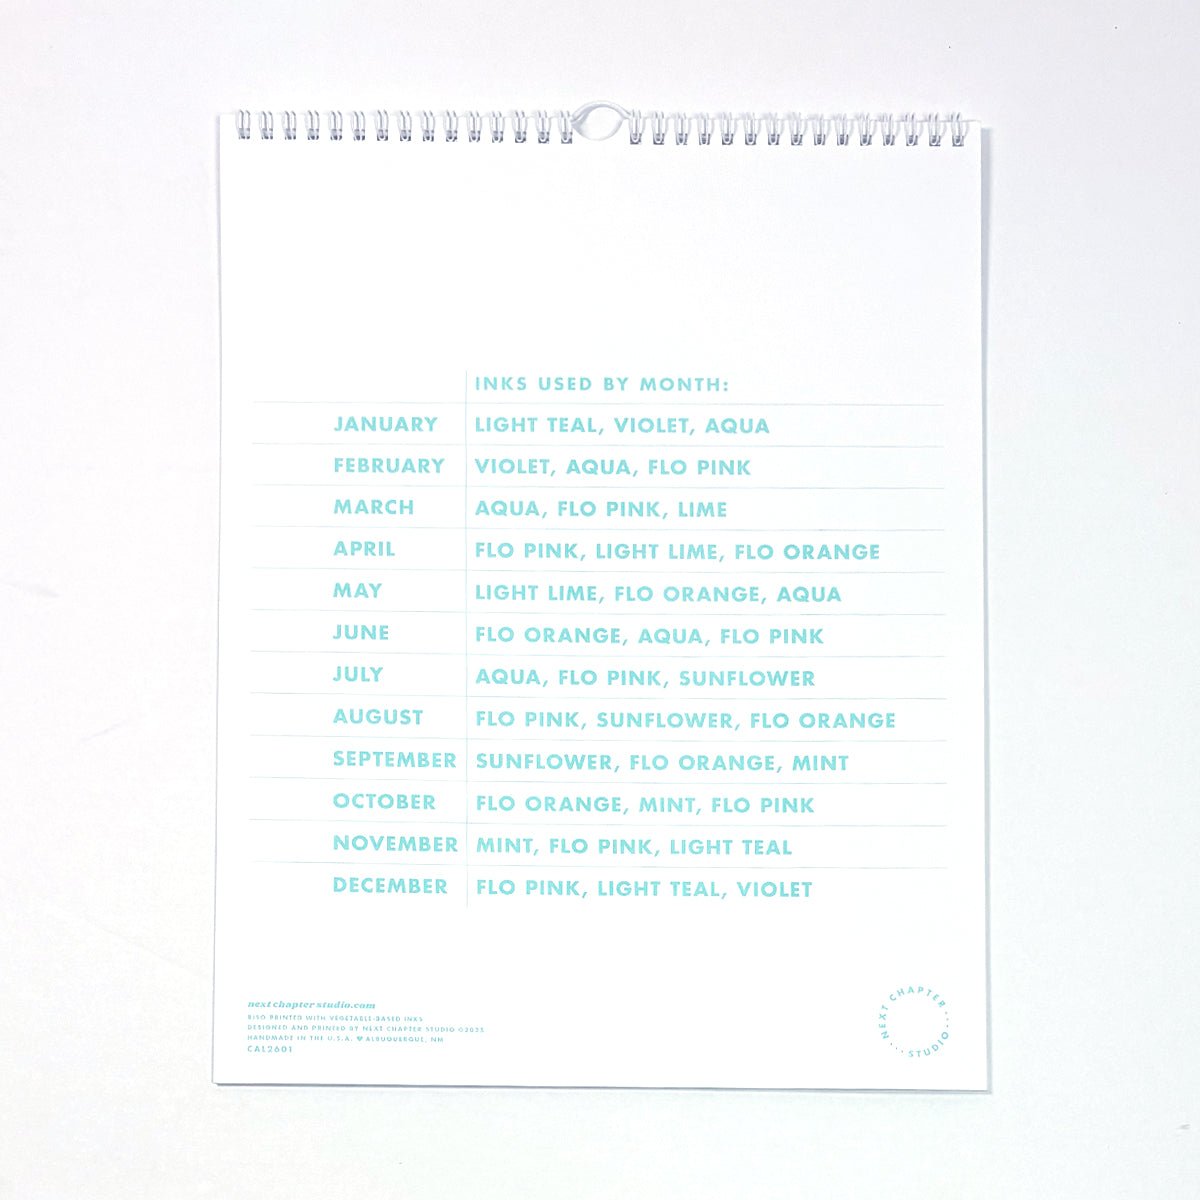 INKS USED BY MONTH:
JANUARY LIGHT TEAL, VIOLET, AQUA
FEBRUARY VIOLET, AQUA, FLO PINK
MARCH AQUA, FLO PINK, LIME
APRIL FLO PINK, LIGHT LIME, FLO ORANGE
MAY LIGHT LIME, FLO ORANGE, AQUA
JUNE FLO ORANGE, AQUA, FLO PINK
JULY AQUA, FLO PINK, SUNFLOWER
AUGUST FLO PINK, SUNFLOWER, FLO ORANGE
SEPTEMBER SUNFLOWER, FLO ORANGE, MINT
OCTOBER FLO ORANGE, MINT, FLO PINK
NOVEMBER MINT, FLO PINK, LIGHT TEAL
DECEMBER FLO PINK, LIGHT TEAL, VIOLET
nextchapterstudio.com
RISO PRINTED WITH VEGETABLE-BASED INKS
DESIGNED AND PRINTED BY NEXT CHAPTER STUDIO ©2025
HANDMADE IN THE U.S.A. ♥ ALBUQUERQUE, NM
CAL2601
NEXT CHAPTER ... STUDIO ...